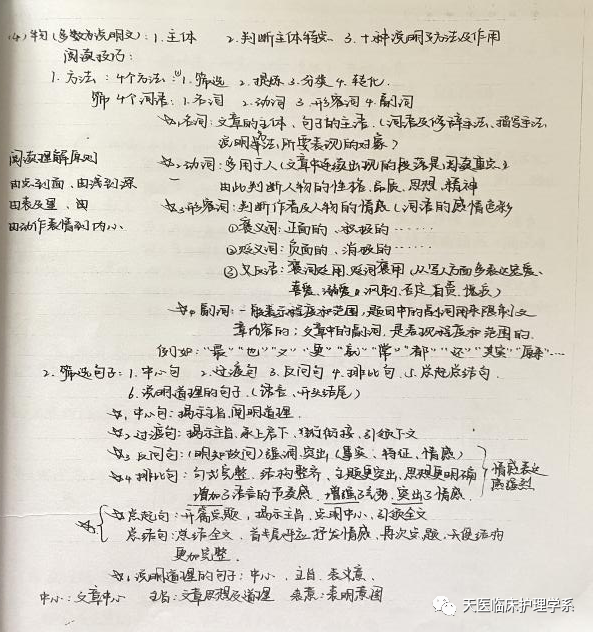 (4) 物(多数为说明文): 1. 主体 2. 判断主体特点 3. 十种说明方法及作用
阅读技巧:
1. 方法: 4个方法: 1. 筛选 2. 提炼 3. 分类 4. 转化.
筛 4个词语: 1. 名词 2. 动词 3. 形容词 4. 副词
名词: 文章的主体、句子的主语. (词语及修辞手法、描写手法
说明手法, 所要表现的对象)
阅读理解原则
由点到面、由浅到深
由表及里、由
由动作表情到内心.
2. 动词: 多用于人 (文章中连续出现的段落是阅读重点)
由此判断人物的性格、品质、思想、精神
3. 形容词: 判断作者及人物的情感 (词语的感情色彩
① 褒义词: 正面的、积极的……
② 贬义词: 负面的、消极的……
③ 反语: 褒词贬用、贬词褒用 (从写人方面多表达
喜爱、溺爱、讽刺、否定、自责、愧疚)
4. 副词: 一般表示程度和范围, 题目中的副词用来限制文
章内容的; 文章中的副词, 是表现程度和范围的.
例如: “最” “也” “又” “更” “就” “常” “都” “还” “其实” “原来”…
2. 筛选句子: 1. 中心句 2. 过渡句 3. 反问句 4. 排比句. 5. 总起总结句.
6. 说明道理的句子. (语言、开头结尾)
1. 中心句: 揭示主旨, 阐明道理.
2. 过渡句: 揭示主旨、承上启下、引领下文
3. 反问句: (明知故问) 强调、突出 (事实、特征、情感)
4. 排比句: 句式完整、结构整齐、主题更突出, 思想更明确
增加了语言的节奏感、增强了气势, 突出了情感.
情感表达
更强烈
总起句: 开篇点题, 揭示主旨, 点明中心, 引领全文
总结句: 总结全文、首尾呼应, 抒发情感、再次点题, 使结构
更加完整.
说明道理的句子: 中心、主旨、表意.
中心: 文章中心 主旨: 文章思想及道理 表意: 表明意图
天医临床护理学系